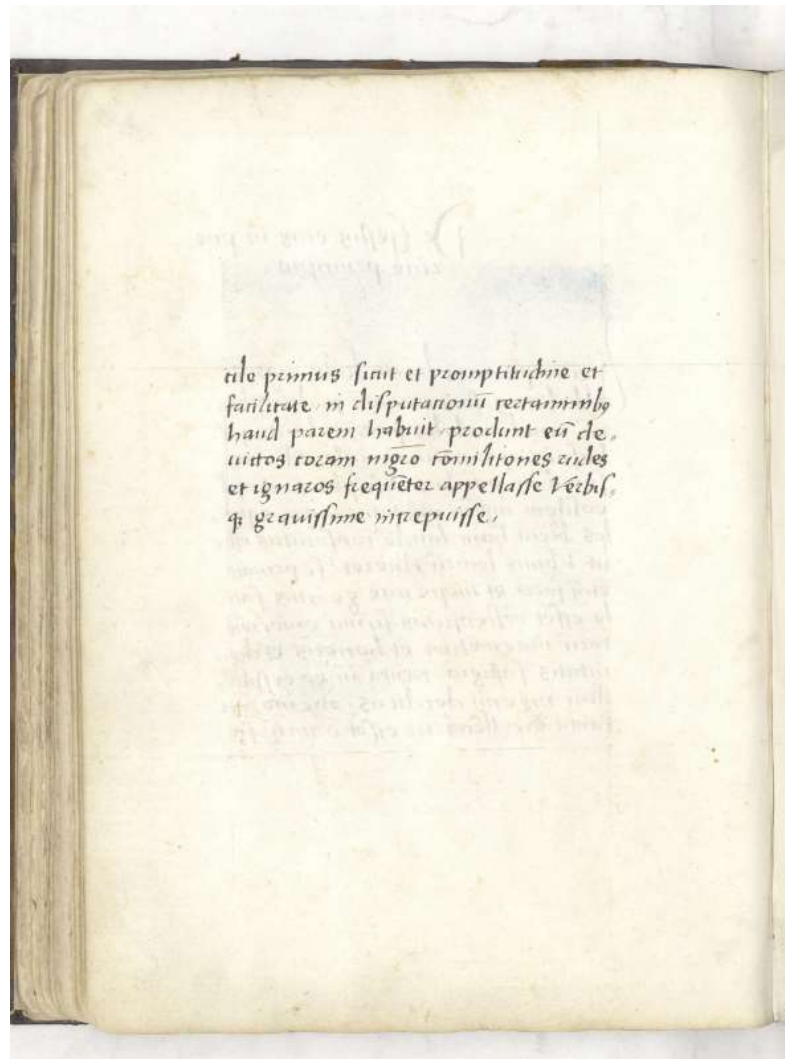 cile primus sicut et promptitudine et
facilitate in disputationū certaminibꝫ
haud parem habuit prodūnt eū de,
uictos coram nigro cōmilitones rudes
et ignaros frequēter appellasse Verbis,
qꝫ grauissime increpuisse,